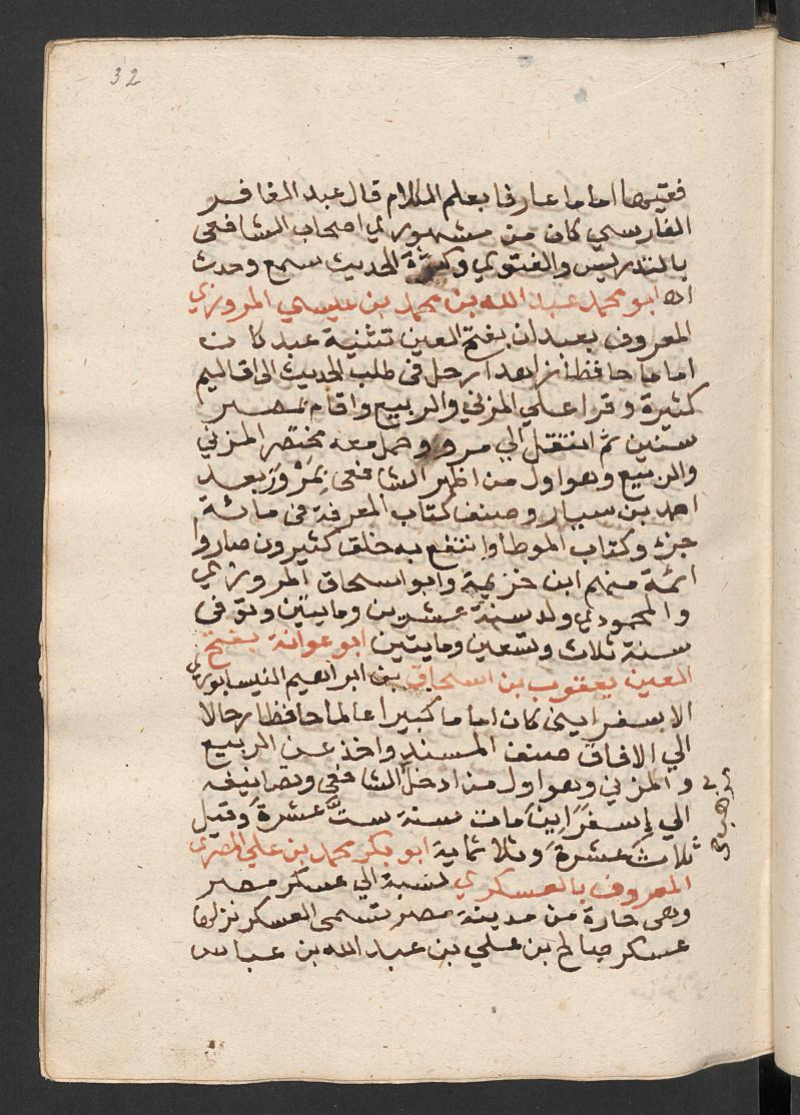 32
فقيها اماما عارفا بعلم الكلام قال عبد الغافر
الفارسي كان من مشهوري اصحاب الشافعى
بالتدريس والفتوي وكثرة الحديث سمع وحدث
اه ابو محمد عبد الله بن محمد بن عيسي المروزي
المعروف بعبدان بفتح العين تثنية عبد كان
اماما حافظا زاهدا رحل فى طلب الحديث الى اقاليم
كثيرة وقرا علي المزني والربيع واقام بمصر
سنين ثم انتقل الي مرو وحمل معه مختصر المزني
والربيع وهو اول من اظهر الشافعى بمَرْوَ بعد
احمد بن سيار وصنف كتاب المعرفة فى مائة
جزء وكتاب الموطا وانتفع به خلق كثيرون صاروا
ائمة منهم ابن خزيمة وابو اسحاق المروزي
والمحمودي ولد سنة عشرين ومايتين وتوفى
سنة ثلاث وتسعين ومايتين ابو عوانة بفتح
العين يعقوب بن اسحاق بن ابراهيم النيسابوري
الاسفرايني كان اماما كبيرا عالما حافظا رحالا
الي الافاق صنف المسند واخذ عن الربيع
والمزني وهو اول من ادخل الشافعى وتصانيفه
الي إسفَرَاين مات سنة ستَّ عشرةَ وقيل
ثلاثَ عشرةَ وثلاثماية ابو بكر محمد بن علي المصري
المعروف بالعسكري نسبة الي عسكر مصر
وهى حارة من مدينة مصر تسمى العسكر نزلها
عسكر صالح بن علي بن عبد الله بن عباس